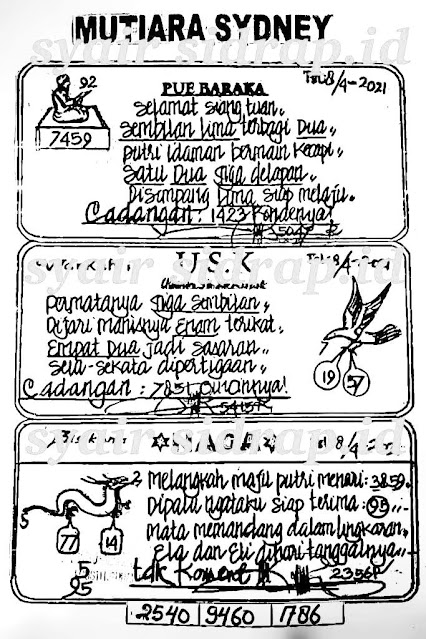 MUTIARA SYDNEY
syair sidrap.id
PUE BARAKA
Tgl: 8/4-2021
92
7459
Selamat siang tuan,,
Sembilan lima terbagi Dua,,
putri idaman bermain Kecapi,,
Satu Dua tiga delapan,,
Disimpang lima siap melaju.
Cadangan: 1423 Kondenya!
5047
syair sidrap.id
U S K
permatanya tiga sembilan,,
Dijari manisnya Enam terikat,
Empat Dua jadi sasaran,,
Sela-sekata dipertigaan,,
Cadangan : 7851 Cincinnya!
5415
7
19
57
syair sidrap.id
NAGA
8/4-
2
5
77
14
Melangkah maju putri menari: 3859.
Dipatu ngataku siap terima: 95
mata memandang dalam lingkaran,,
Ela dan Eri dihari tanggalnya,,
5
95
tdk Koment
2356
2540 9460 1786